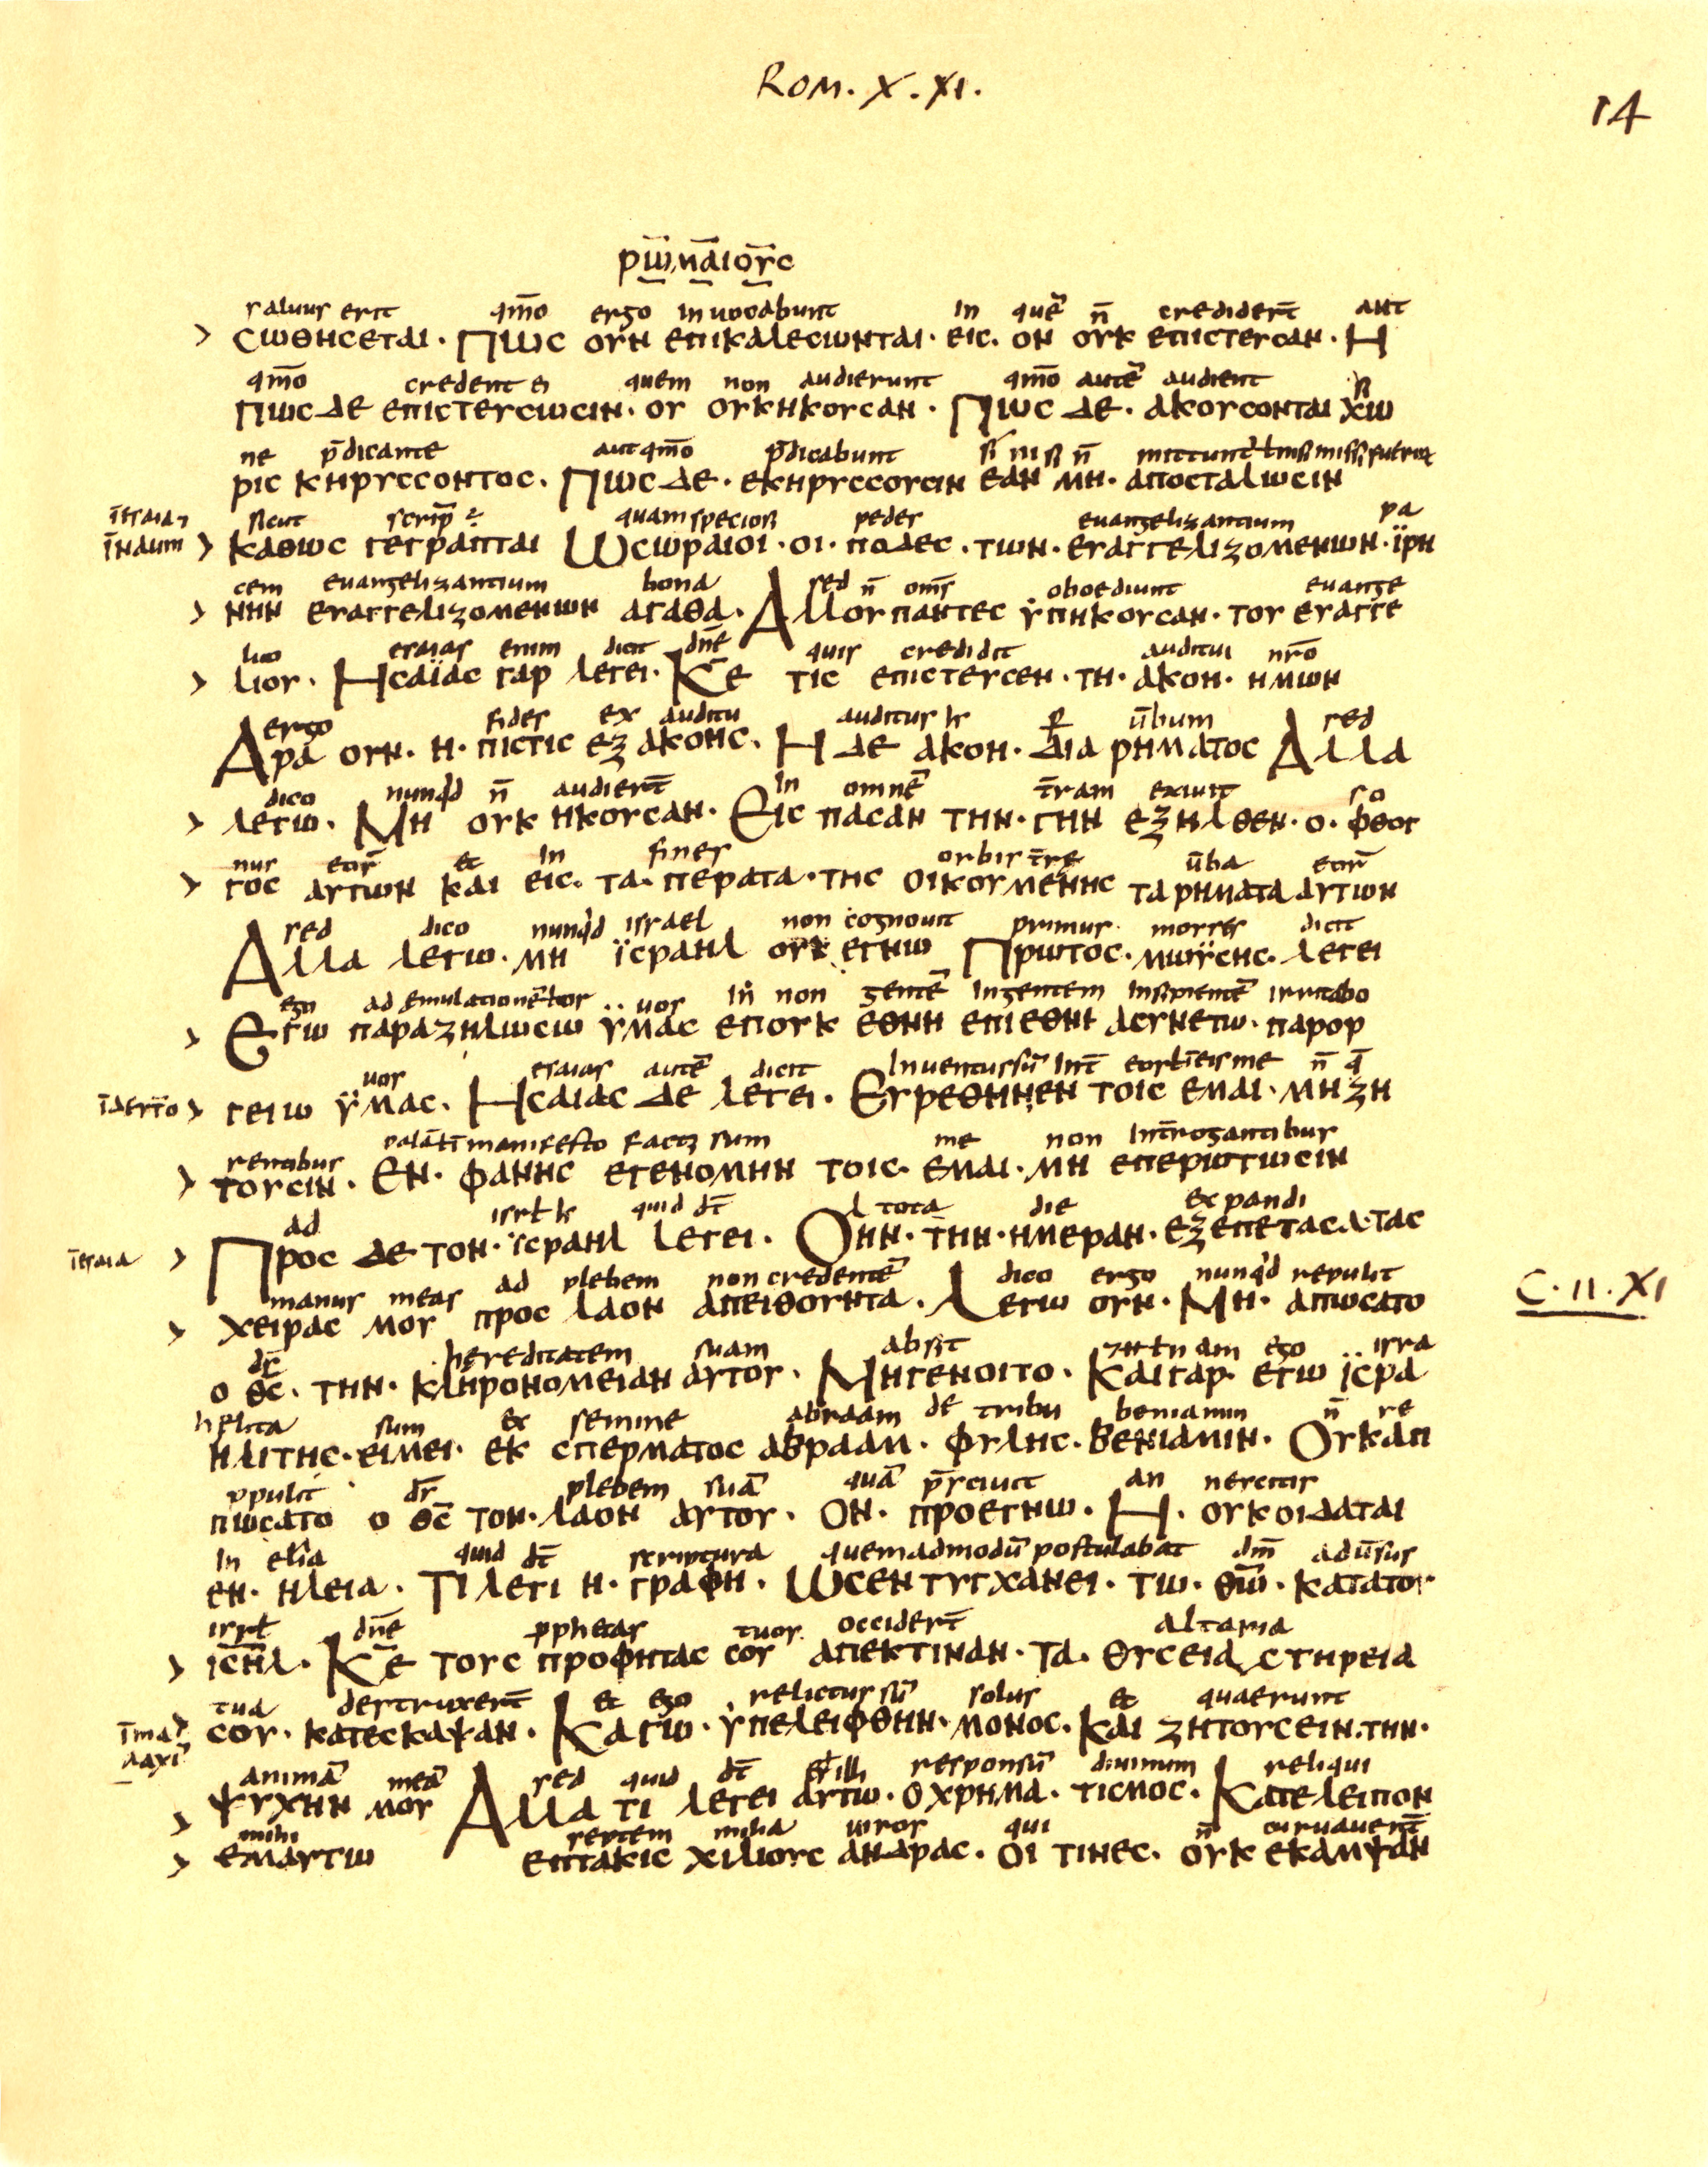 ROM. X. XI.
14
ρω̅μα̅ιου̅ς
saluus erit qm̅o ergo inuocabunt in que̅ n̅ credider̅t aut
> σωθησεται · Πως ουν επικαλεσωνται · εις · ον ουκ επιστευσαν · Η
qm̅o credent ei quem non audierunt qm̅o aute̅ audient
πως δε επιστευσωσιν · ου ουκηκουσαν · Πως δε · ακουσονται χω
ne p̅dicante aut qm̅o p̅dicabunt si nisi n̅ mittunt̅ ł nisi missi fuerint
ρις κηρυσσοντος · Πως δε · εκηρυσσουσιν εαν μη · αποσταλωσιν
sicut scrip̅ quam speciosi pedes euangelizantium pa
> καθως γεγραπται Ωσωραιοι · οι · ποδες · των · ευαγγελιζομενων · ϊρη
cem euangelizantium bona sed n̅ om̅s oboediunt euange
> νην ευαγγελιζομενων αγαθα · Αλλου παντες ϋπηκουσαν · του ευαγγε
lio esaias enim dicit dn̅e quis credidit auditui nr̅o
> λιου · Ησαϊας γαρ λεγει · Κ̅ε τις επιστευσεν · τη · ακοη · ημων
ergo fides ex auditu auditus h p̅ u̅bum sed
Αρα ουν · η · πιστις εξ ακοης · Η δε ακοη · δια ρηματος Αλλα
dico nunq̅d n̅ audier̅t in omne̅ t̅ram exiuit so
> λεγω · Μη ουκ ηκουσαν · Εις πασαν την · γην εξηλθεν · ο · φθογ
nus eor̅ et in fines orbis t̅re u̅ba eor̅
> γος αυτων και εις · τα · περατα · της οικουμενης τα ρηματα αυτων
sed dico nunq̅d israel non cognouit primus moyses dicit
Αλλα λεγω · μη ϊσραηλ ουκ εγνω Πρωτος · μωϋσης · λεγει
ego ad emulatione̅ uos in non gente̅ in gentem insipiente̅ irritabo
> Εγω παραζηλωσω ϋμας επουκ εθνη επιεθνι ασυνετω · παρορ
uos esaias aute̅ dicit inuentus su̅ n̅ q̅
> γειω ϋμας · Ησαιας δε λεγει · Ευρεθηηεν τοις εμαι · μη ζη
rentibus manifesto factus sum me non int̅rogantibus
> τουσιν · Εν · φανης εγενομην τοις · εμαι · μη επερωτωσιν
ad isrł h quid di̅t tota die expandi
> Προς δε τον · ϊσραηλ λεγει · Οην · την · ημεραν · εξεπετασα · τας
manus meas ad plebem non credente̅ dico ergo nunq̅d repulit
> χειρας μου προς λαον απειθουντα · Λεγω ουν · Μη · απωσατο
C. II. XI
ds̅ hereditatem suam absit nam ego isra
ο θ̅ς · την · κληρονομειαν αυτου · Μηγενοιτο · Και γαρ · εγω ϊσρα
helita sum ex semine abraam de tribu beniamin n̅ re
ηλιτης · ειμει · εκ σπερματος αβρααμ · φυλης · βενιαμιν · Ουκαπ
ppulit ds̅ plebem sua̅ qua̅ p̅sciuit an nescitis
πωσατο ο θ̅ς τον · λαον αυτου · ον · προεγνω · Η · ουκοιδαται
in elia quid di̅t scriptura quemadmodu̅ postulabat dm̅ adu̅sus
εν · ηλεια · Τι λεγι η · γραφη · Ωσεντυγχανει · τω · θ̅ω · κατατου
isrł dn̅e pphetas tuos occider̅t altaria
> ισ̅ηλ · Κ̅ε τους προφητας σου απεκτιναν · τα · θυσειαστηρεια
tua destruxer̅t et ego relictus su̅ solus et quaerunt
> σου · κατεσκαψαν · Καγω · ϋπελειφθην · μονος · και ζητουσειν · την ·
anima̅ mea̅ sed quid di̅t illi responsu̅ diuinum reliqui
> ψυχην μου Αλλα τι λεγει αυτω · ο χρημα · τισμος · Κατελειπον
mihi septem milia uiros qui n̅ curuauer̅t
> εμαυτω επτακις χιλιους ανδρας · οι τινες · ουκ εκαμψαν